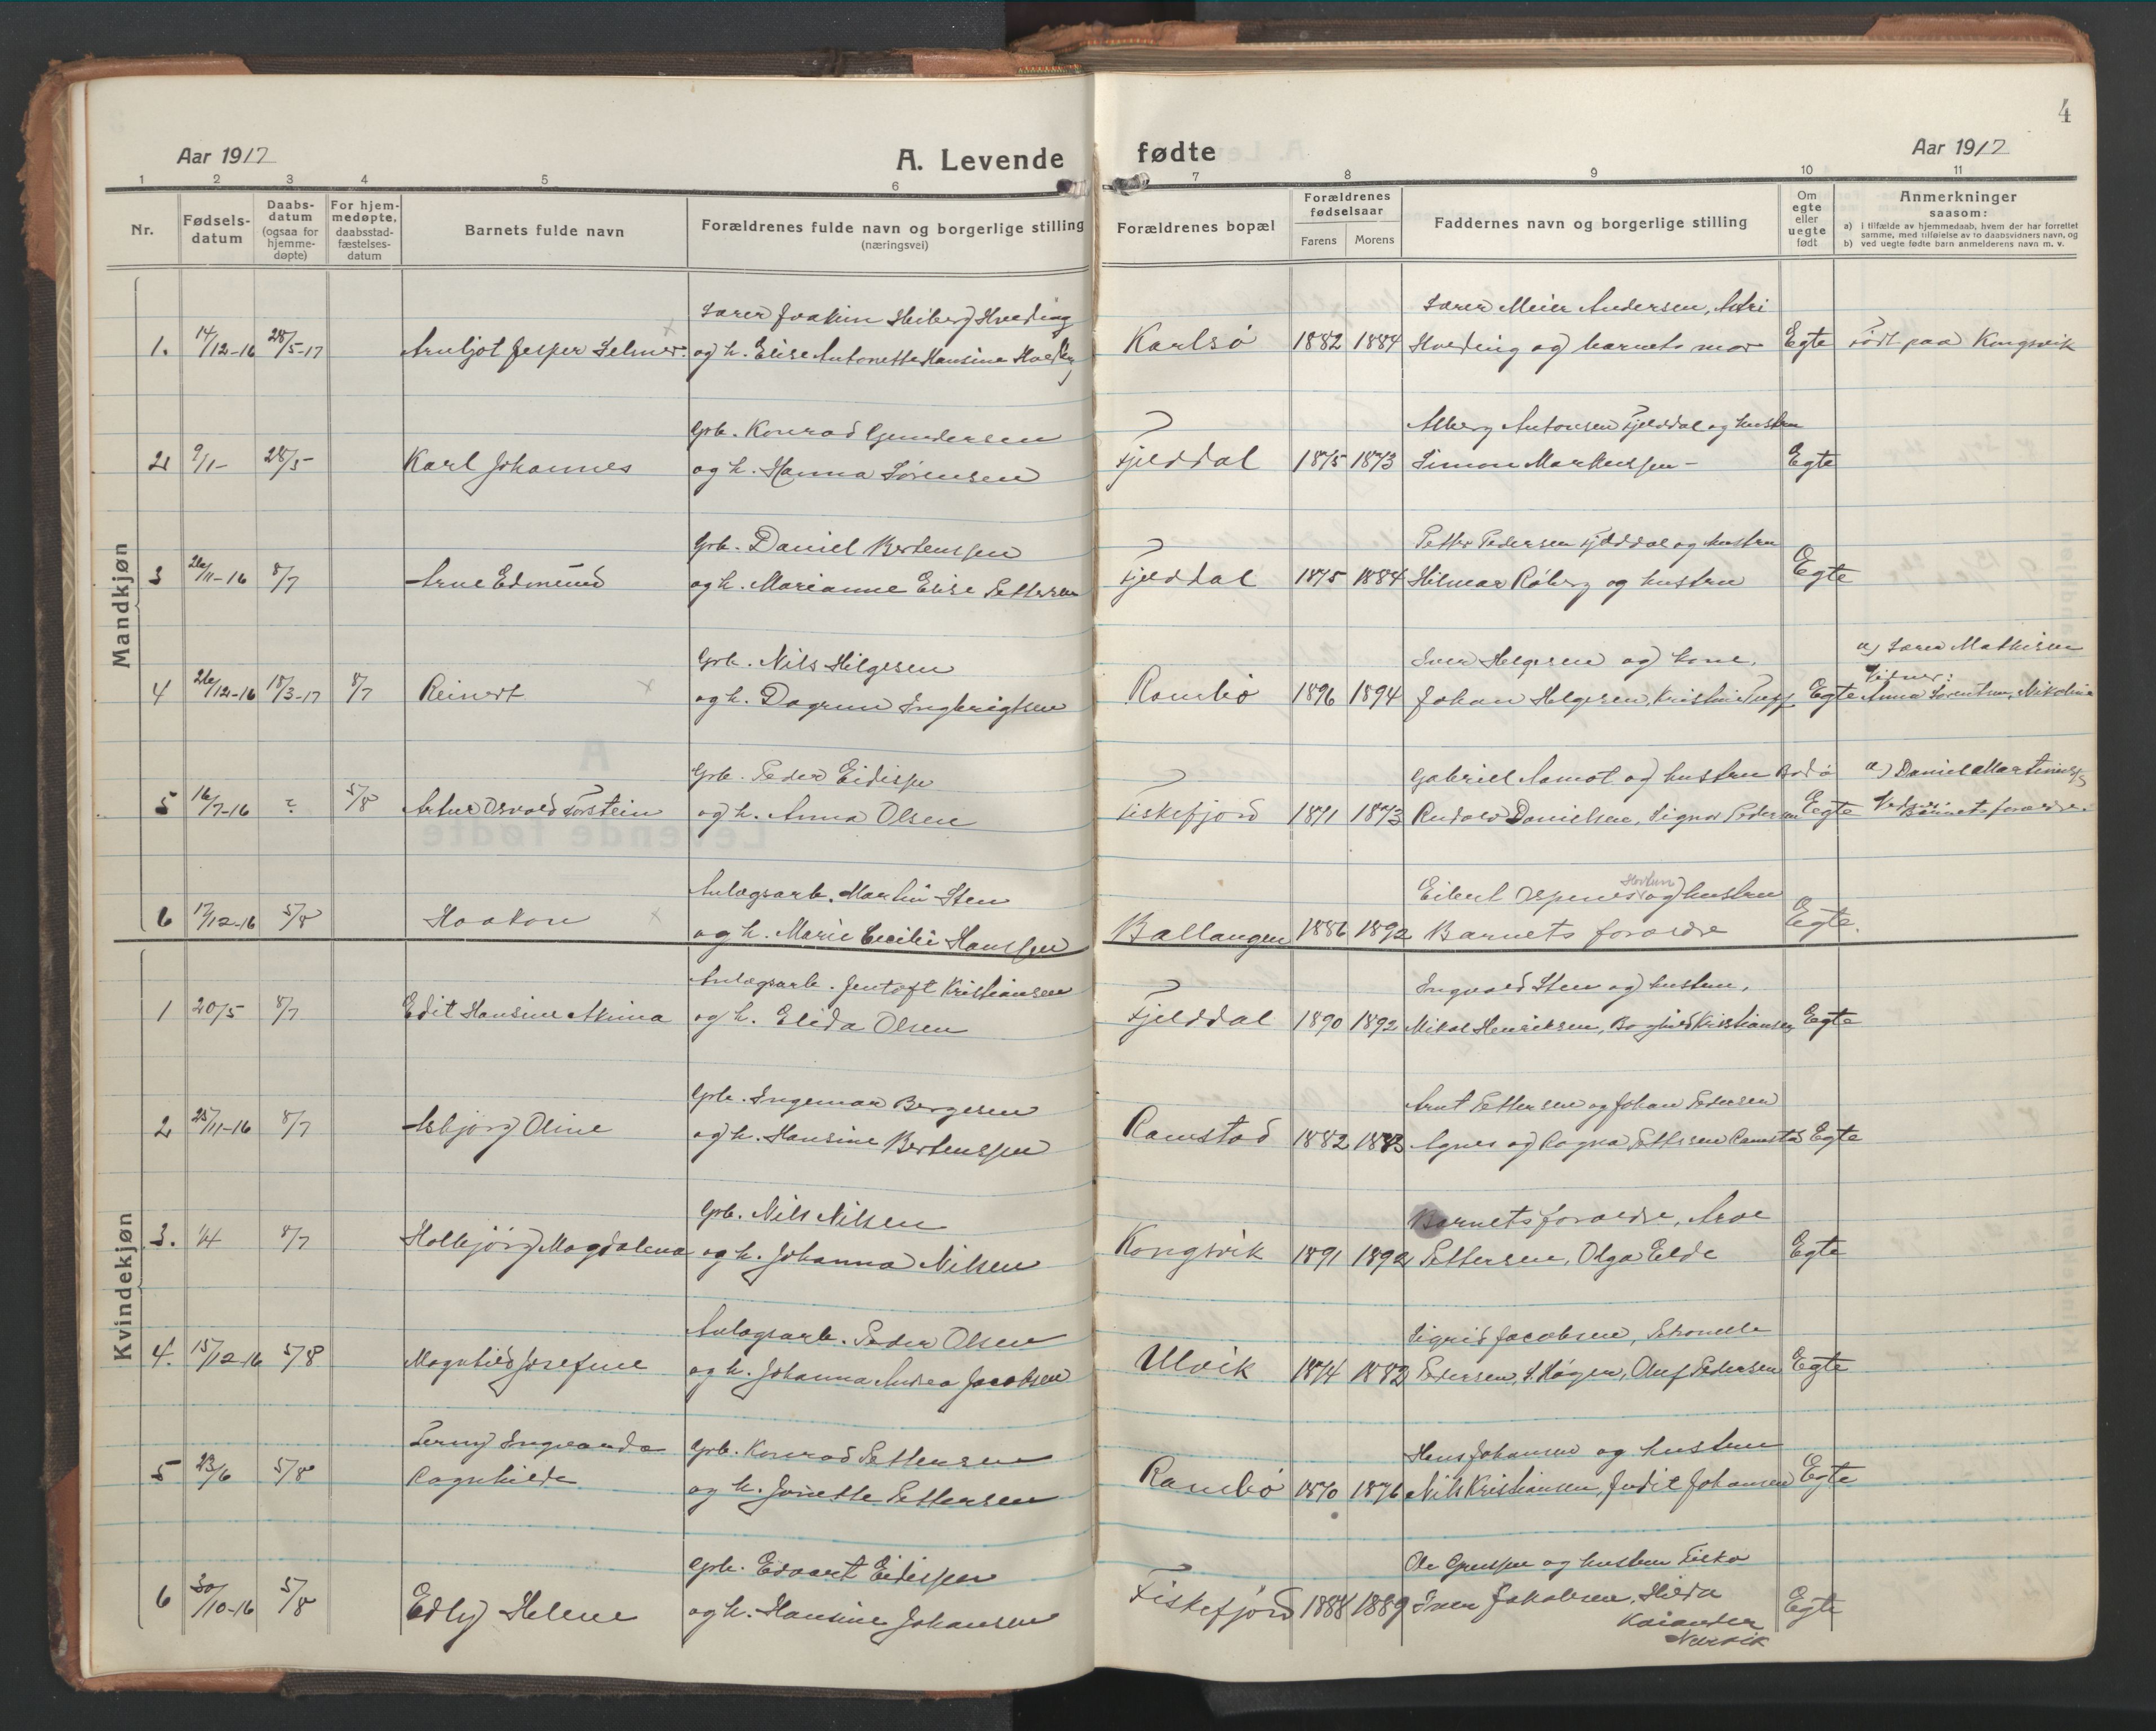 4
Aar 1917
A. Levende fødte
Aar 1917
1 2 3 4 5 6 7 8 9 10 11
Nr.
Fødsels-
datum
Daabs-
datum
(ogsaa for
hjemme-
døpte)
For hjem-
medøpte,
daabsstad-
fæstelses-
datum
Barnets fulde navn
Forældrenes fulde navn og borgerlige stilling
(næringsvei)
Forældrenes bopæl
Forældrenes
fødselsaar
Farens Morens
Faddernes navn og borgerlige stilling
Om
egte
eller
uegte
født
Anmerkninger
saasom:
a) i tilfælde av hjemmedaab, hvem der har forrettet
samme, med tilføielse av to daabsvidners navn, og
b) ved uegte fødte barn anmelderens navn m. v.
Mandkjøn
Lærer Joakim Heiberg Hveding
Lærer Meier Andersen,
1. 14/12-16 28/5-17 Arnljot Jesper Selmer. og h. Elise Antonette Hansine Karlsö 1882 1884 Hveding og barnets mor Egte Födt paa Kongsvik
Grb. Konrad Gundersen
Alberg Antonsen Fjelddal og hustru
2 9/1- 28/5 Karl Johannes og h. Hanna Sörensen Fjelddal 1875 1873 Simon Markussen - Egte
Grb. Daniel Bertenssen
Petter Pedersen Fjelddal og hustru
3 26/11-16 8/7 Arne Edmund og h. Marianne Elise Pettersen Fjelddal 1875 1884 Hilmar Röberg og hustru Egte
Grb. Nils Helgesen
Iver Helgesen og kone,
a) Lærer Mathisen
Vidner:
4 26/12-16 18/3-17 8/7 Reinert og h. Dagrun Ingbrigtsen Rambö 1896 1894 Johan Helgesen, Kristine Egte Anna Nikoline
Grb. Peder Eidissen
Gabriel Aamot og hustru Bodö
a) Daniel Martinussen
5 16/7-16 ? 5/8 Artur Osvald Torstein og h. Anna Olsen Fiskefjord 1871 1873 Rudolv Danielsen, Signe Pedersen Egte Vidner: Barnets forædre.
Anlægsarb. Martin Sten
Eilert Ospenes og hustru
6 17/12-16 5/8 Haakon og h. Marie Cecilie Hanssen Ballangen 1886 1892 Barnets forældre Egte.
Kvindekjøn
Anlægsarb. Jentoft Kristiansen
Ingvald Sten og hustru,
1 20/5 8/7 Edit Hansine Alvina og h. Elida Olsen Fjelddal 1890 1892 Mikal Henriksen, Borghild Kristiansen Egte
Grb. Ingemar Bergesen
Arnt Pettersen og Johan Pedersen
2 25/11-16 8/7 Asbjörg Oline og h. Hansine Bertenssen Ramstad 1882 1883 Agnes og Ragna Pettersen Ramstad Egte
Grb. Nils Nilsen
Barnets forældre,
3. 1/4 8/7 Magdalena og h. Johanna Nilsen Kongsvik 1891 1892 Pettersen, Olga Elde Egte
Anlægsarb. Peder Olsen
Sigrid Jacobsen, Petronelle
4. 15/12-16 5/8 Magnhild Josefine og h. Johanna Andrea Jacobsen Ulvik 1874 1882 Pedersen, Oluf Pedersen Egte
Jenny Ingvarda
Grb. Konrad Pettersen
Hans Johansen og hustru
5 23/6 5/8 Ragnhilda og h. Jonette Pettersen Rambö 1870 1876 Nils Kristiansen, Judit Johansen Egte
Grb. Edvart Eidissen
Ole og hustru
6 30/10-16 5/8 Edly Helene og h. Hansine Johansen Fiskefjord 1888 1889 Iver Jakobsen, Hilda Egte
Narvik